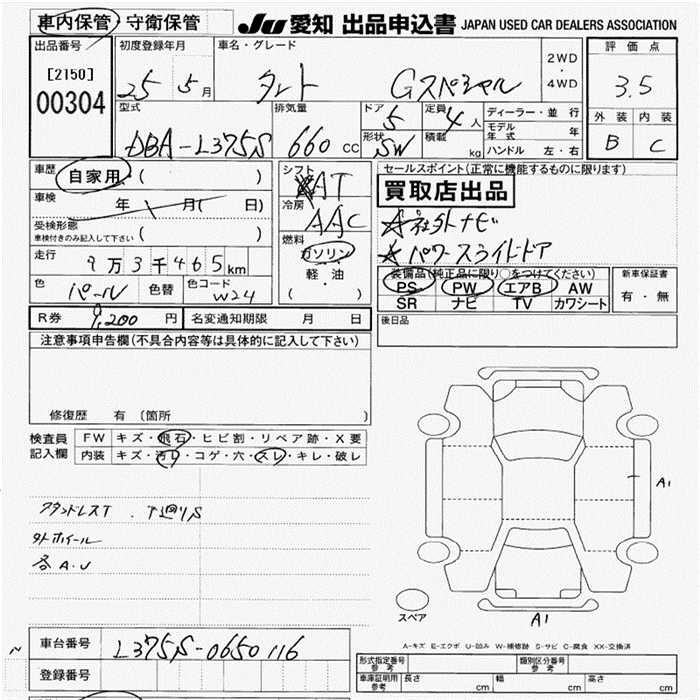 車内保管・守衛保管
JU 愛知 出品申込書 JAPAN USED CAR DEALERS ASSOCIATION
出品番号
[2150]
00304
初度登録年月
25 5月
車名・グレード
タント Gスペシャル
2WD
・
4WD
評価点
3.5
外装 内装
B C
型式
DBA-L375S
排気量
660 cc
ドア
5
形状
SW
定員
4人
積載
kg
ディーラー・並行
モデル年式 年
ハンドル 左・右
車歴
自家用 ( )
車検
年 月( 日)
受検形態
車検付きのみ記入して下さい ( )
走行
9万3千465km
色
パール
色替
色コード
W24
シフト
AT
冷房
AAC
燃料
ガソリン
軽・油
( )
セールスポイント(正常に機能するものに限ります)
買取店出品
社外ナビ
パワースライドドア
装備品(純正品に限り○をつけてください)
PS PW エアB AW
SR ナビ TV カワシート
新車保証書
有・無
R券 9,200円
名変通知期限 月 日
後日品
注意事項申告欄(不具合内容等は具体的に記入して下さい)
修復歴 有 (箇所 )
検査員
記入欄
FW キズ・飛石・ヒビ割・リペア跡・X要
内装 キズ・汚レ・コゲ・穴・スレ・キレ・破レ
下廻りS
外ホイール
各A.U
A1
スペア
A1
A-キズ E-エクボ U-凹み W-補修跡 S-サビ C-腐食 XX-交換済
車台番号
L375S-0650116
登録番号
形式指定番号
参考
類別区分番号
参考
車庫証明用
参考
長さ cm 幅 cm 高さ cm